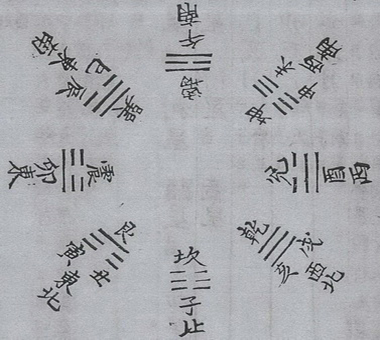 離
午南
坤
未申
西南
兌
酉西
乾
戌亥
西北
坎
子北
艮
丑寅
東北
震
卯東
巽
辰巳
東南